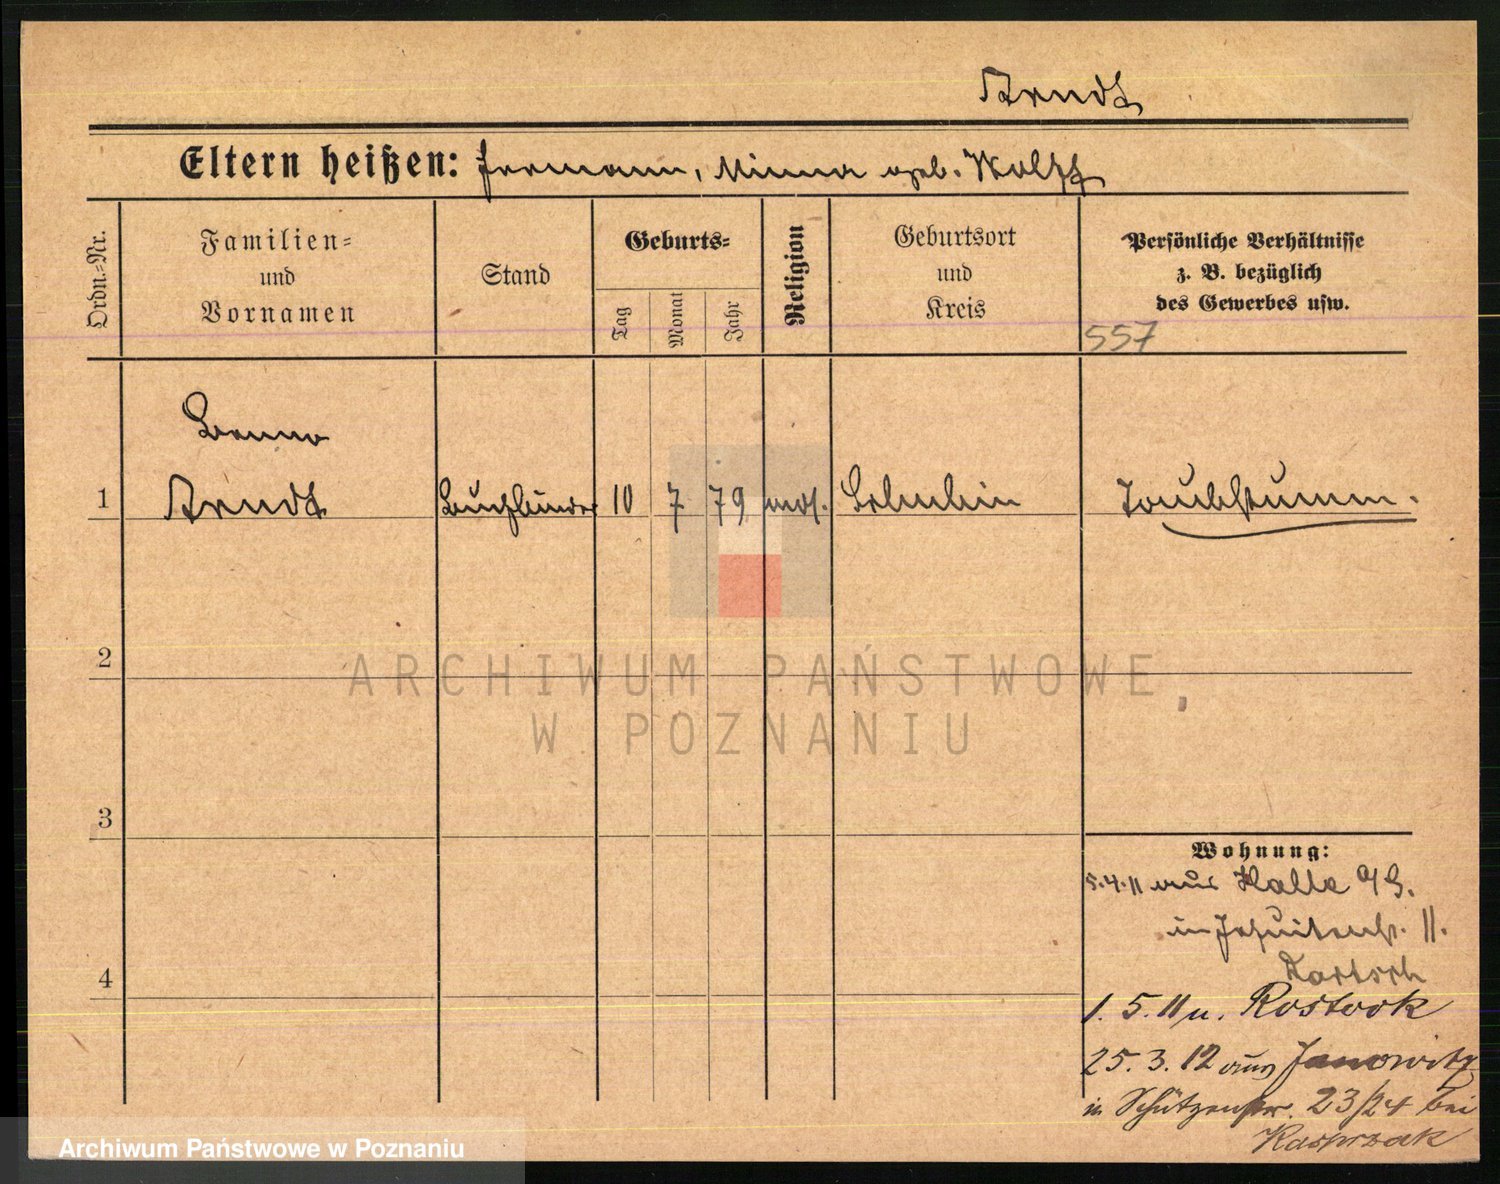 Arndt
Eltern heißen: Hermann, Minna geb. Wolff
Ordn.=Nr.
Familien=
und
Vornamen
Stand
Geburts=
Tag
Monat
Jahr
Religion
Geburtsort
und
Kreis
Persönliche Verhältnisse
z. B. bezüglich
des Gewerbes usw.
557
Benno
1 Arndt Buchbinder 10 7 79 mos. Taubstumm.
2
ARCHIWUM PAŃSTWOWE
W POZNANIU
3
Wohnung:
5.4.11 aus Halle a/S.
in Jesuitenstr. 11.
1. 5. 11 n. Rostock
25. 3. 12 aus Janowitz
in Schützenstr. 23/24 bei
Kasprzak
4
Archiwum Państwowe w Poznaniu